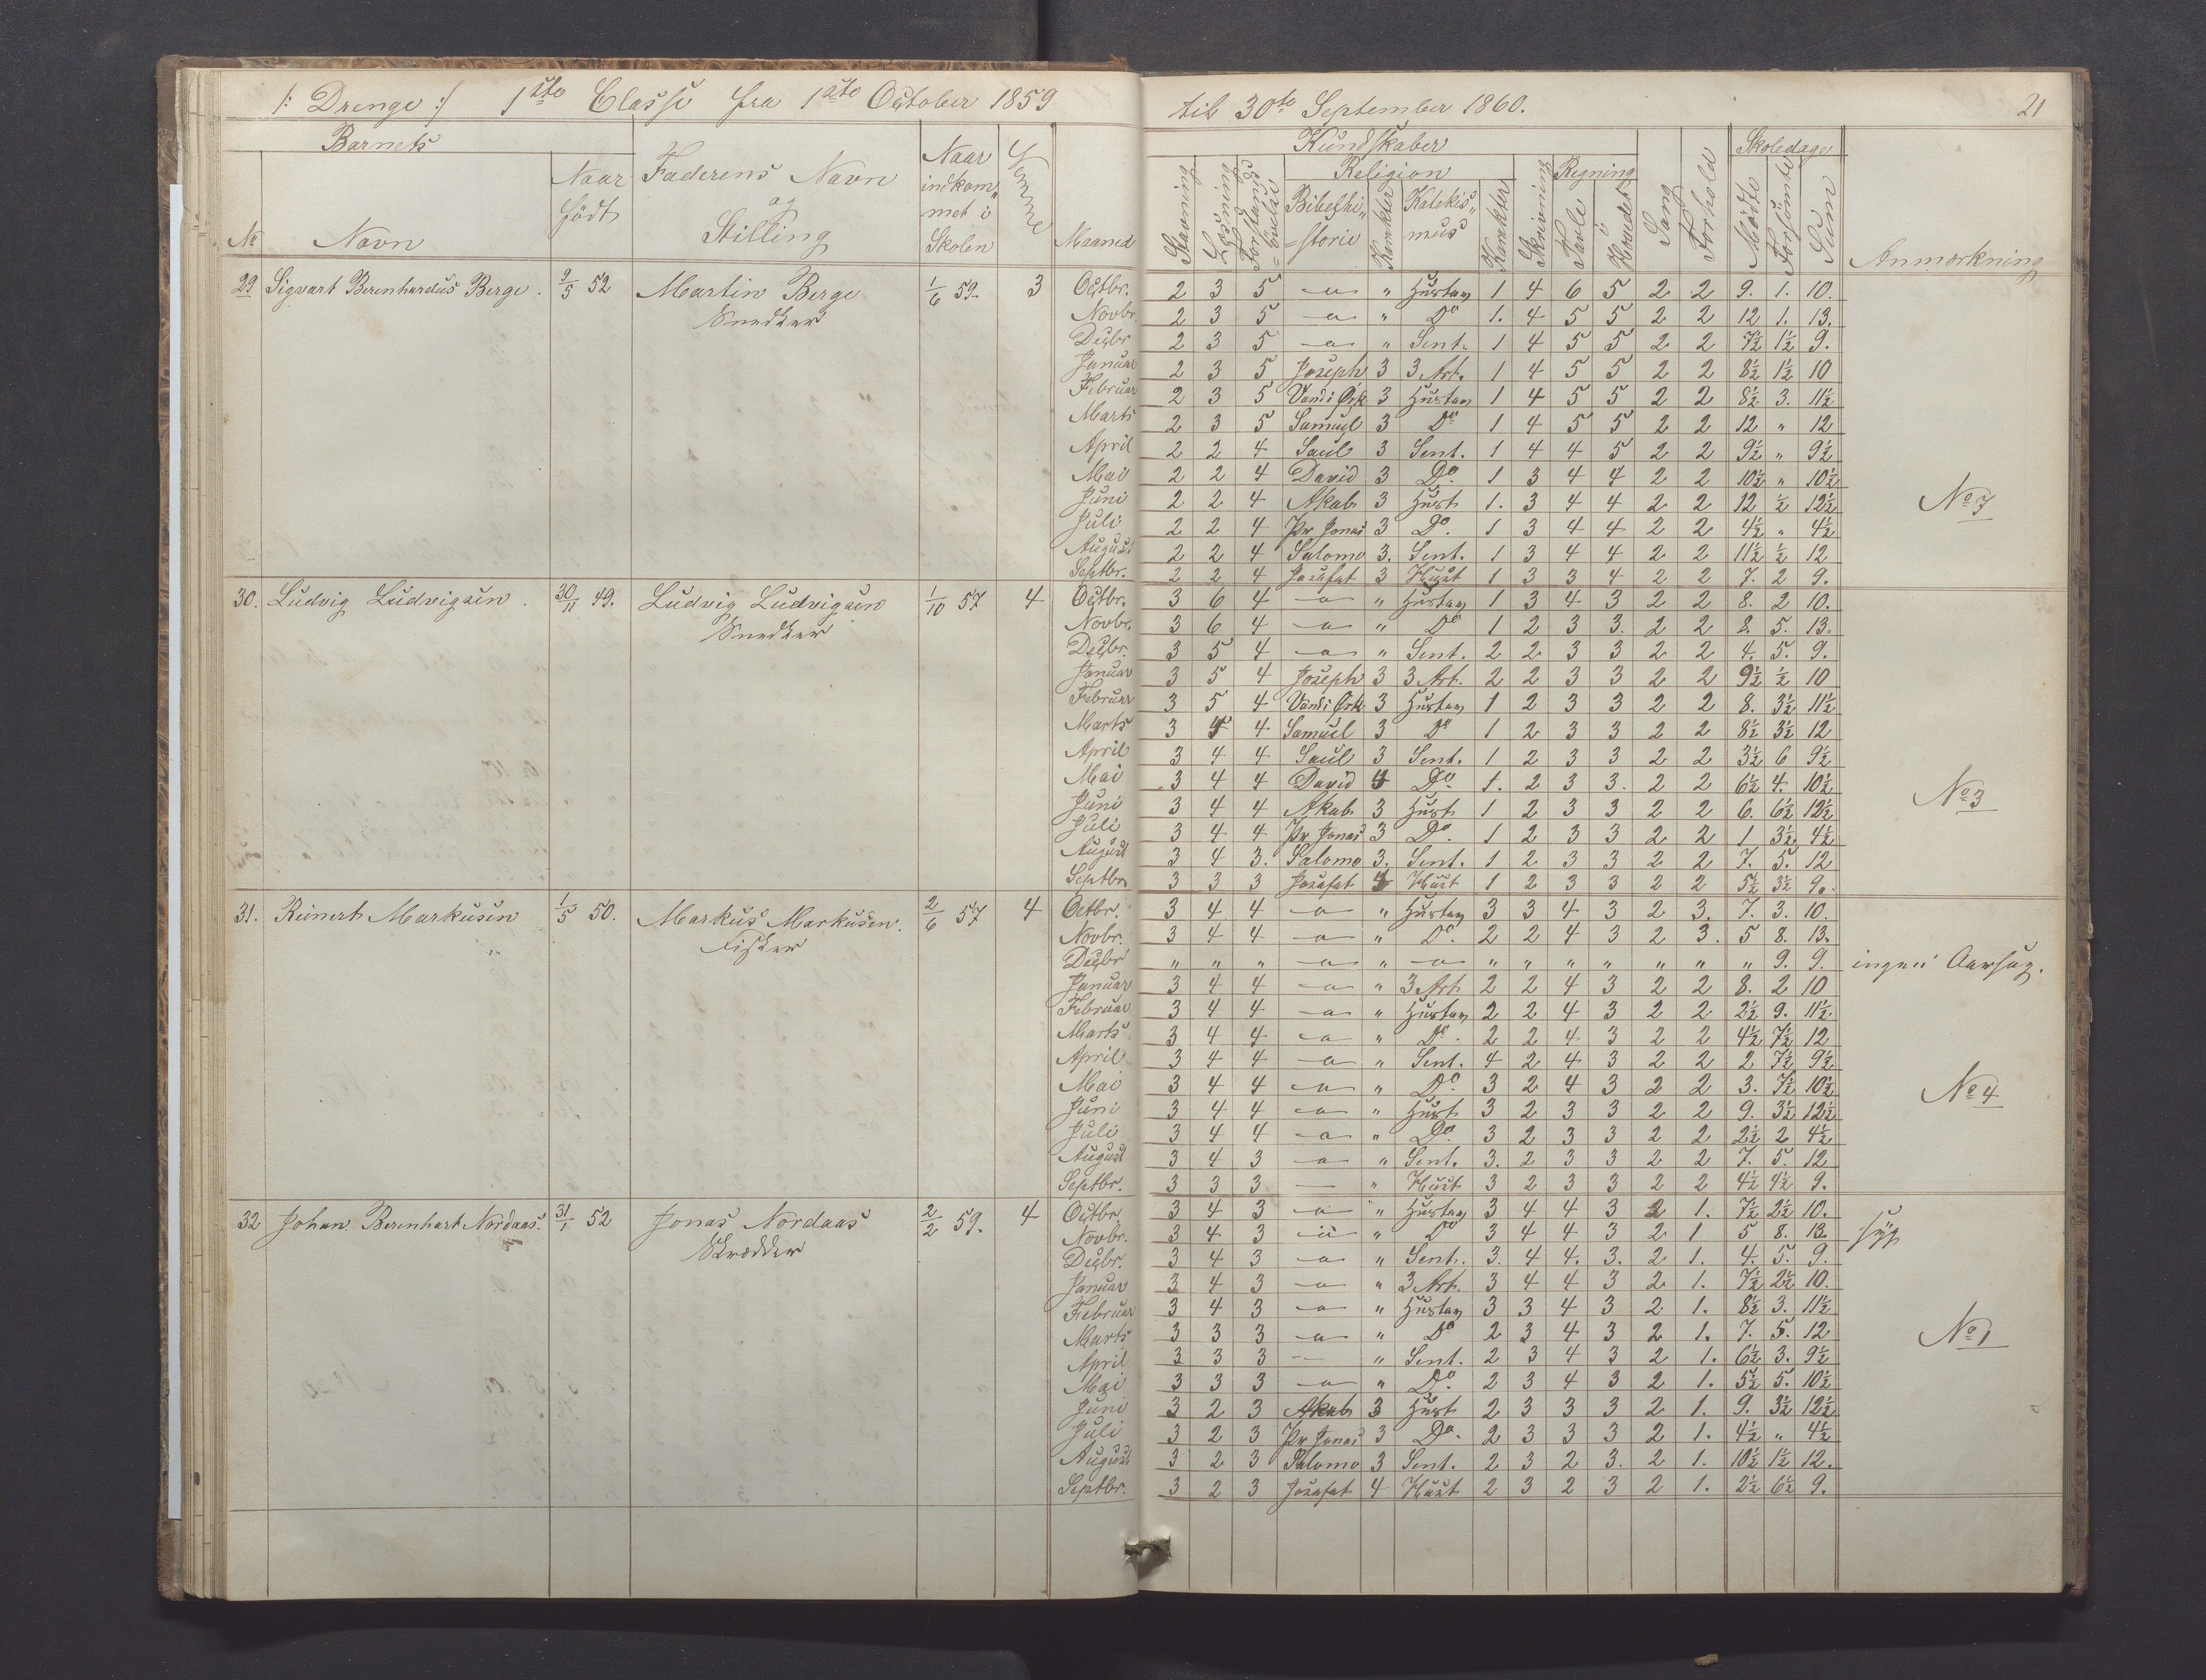 /: Drenge :/ 1ste Classe fra 1ste October 1859 til 30te September 1860. 21
Barnets Kundskaber Skoledage
No Navn Naar födt Faderens Navn og Stilling Naar indkommet i Skolen Evne Maaned Stavning Læsning Forstands=övelse Religion Bibelhi=storie Karakter Katekis=mus Karakter Skrivning Regning Tavle Hoveder Sang Forhold Mödte Forsömte Sum Anmærkning
29 Sigvart Berenhardus Berge. 9/5 52 Martin Berge 1/6 59. 3 Octbr. 2 3 5 -a- " Hustav 1 4 6 5 2 2 9. 1. 10.
Snedker Novbr. 2 3 5 -a- " Do 1. 4 5 5 2 2 12 1. 13.
Decbr 2 3 5 -a- " Sent. 1 4 5 5 2 2 7½ 1½ 9.
Januar 2 3 5 Joseph 3 3 Art. 1 4 5 5 2 2 8½ 1½ 10
Februar 2 3 5 Vand i Ørk 3 Hustav 1 4 5 5 2 2 8½ 3. 11½
Marts 2 3 5 Samuel 3 Do 1 4 5 5 2 2 12 " 12
April 2 2 4 Saul 3 Sent. 1 4 4 5 2 2 9½ " 9½
Mai 2 2 4 David 3 Do. 1 3 4 4 2 2 10½ " 10½
Juni 2 2 4 Akab 3 Hust 1. 3 4 4 2 2 12 ½ 12½ No 7
Juli 2 2 4 Pr Jonas 3 Do. 1 3 4 4 2 2 4½ " 4½
August 2 2 4 Salomo 3. Sent. 1 3 4 4 2 2 11½ ½ 12
Septbr. 2 2 4 Josafat 3 Hust 1 3 3 4 2 2 7. 2 9.
30. Ludvig Ludvigsen. 30/11 49. Ludvig Ludvigsen 1/10 57 4 Octbr. 3 6 4 -a- " Hustav 1 3 4 3 2 2 8. 2 10.
Snedker Novbr. 3 6 4 -a- " Do 1 2 3 3. 2 2 8. 5. 13.
Decbr. 3 5 4 -a- " Sent. 2 2 3 3 2 2 4. 5. 9.
Januar 3 5 4 Joseph 3 3 Art. 2 2 3 3 2 2 9½ ½ 10
Februar 3 5 4 Vand i Ørk. 3 Hustav 1 2 3 3 2 2 8. 3½ 11½
Marts 3 4 Samuel 3 Do 1 2 3 3 2 2 8½ 3½ 12
April 3 4 4 Saul 3 Sent. 1 2 3 3 2 2 3½ 6 9½
Mai 3 4 4 David 4 Do. 1. 2 3 3. 2 2 6½ 4. 10½
Juni 3 4 4 Akab 3 Hust 1 2 3 3 2 2 6. 6½ 12½ No 3
Juli 3 4 4 Pr Jonas 3 Do. 1 2 3 3 2 2 1 3½ 4½
August 3 4 3. Salomo 3. Sent. 1 2 3 3 2 2 7. 5. 12
Septbr. 3 3 3 Josafat 4 Hust 1 2 3 3 2 2 5½ 3½ 9.
31. Reinert Markusen 1/5 50. Markus Markusen. 2/6 57 4 Octbr. 3 4 4 -a- " Hustav 3 3 4 3 2 3. 7. 3. 10.
Fisker Novbr. 3 4 4 -a- " Do. 2 2 4 3 2 3. 5 8. 13.
Decbr " " " -a- " -a- " " " " " " " 9. 9. ingen Aarsag.
Januar 3 4 4 -a- " 3 Art 2 2 4 3 2 2 8. 2 10
Februar 3 4 4 -a- " Hustav 2 2 4 3 2 2 2½ 9. 11½
Marts 3 4 4 -a- " Do. 2 2 4 3 2 2 4½ 7½ 12
April 3 4 4 -a- " Sent. 4 2 4 3 2 2 2 7½ 9½
Mai 3 4 4 -a- " Do. 3 2 4 3 2 2 3. 7½ 10½ No 4
Juni 3 4 4 -a- " Hust 3 2 3 3 2 2 9. 3½ 12½
Juli 3 4 4 -a- " Do. 3 2 3 3 2 2 2½ 2 4½
August 3 4 3 -a- " Sent. 3. 2 3 3 2 2 7. 5. 12
Septbr. 3 3 3 — " Hust 3 2 3 3 2 2 4½ 4½ 9.
32 Johan Berenhart Nordaas. 31/1 52 Jonas Nordaas 2/2 59. 4 Octbr. 3 4 3 -a- " Hustav 3 4 4 3 2 1. 7½ 2½ 10.
Skrædder Novbr. 3 4 3 -a- " Do 3 4 4 3 2 1 5 8. 13. syg
Decbr. 3 4 3 -a- " Sent. 3. 4 4. 3. 2 1. 4. 5. 9.
Januar 3 4 3 -a- " 3 Art. 3 4 4 3 2 1. 7½ 2½ 10.
Februar 3 4 3 -a- " Hustav 3 3 4 3 2 1. 8½ 3. 11½
Marts 3 3 3 -a- " Do 2 3 4 3 2 1. 7. 5. 12 No 1
April 3 3 3 — " Sent. 2 3 4 3 2 1. 6½ 3. 9½
Mai 3 3 3 -a- " Do. 2 3 4 3 2 1. 5½ 5. 10½
Juni 3 2 3 Akab 3 Hust 2 3 3 3 2 1. 9. 3½ 12½
Juli 3 2 3 Pr Jonas 3 Do. 2 3 3 3 2 1. 4½ " 4½
August 3 2 3 Salomo 3 Sent. 2 3 2 3. 2 1. 10½ 1½ 12.
Septbr. 3 2 3 Josafat 4 Hust 2 3 2 3 2 1. 2½ 6½ 9.